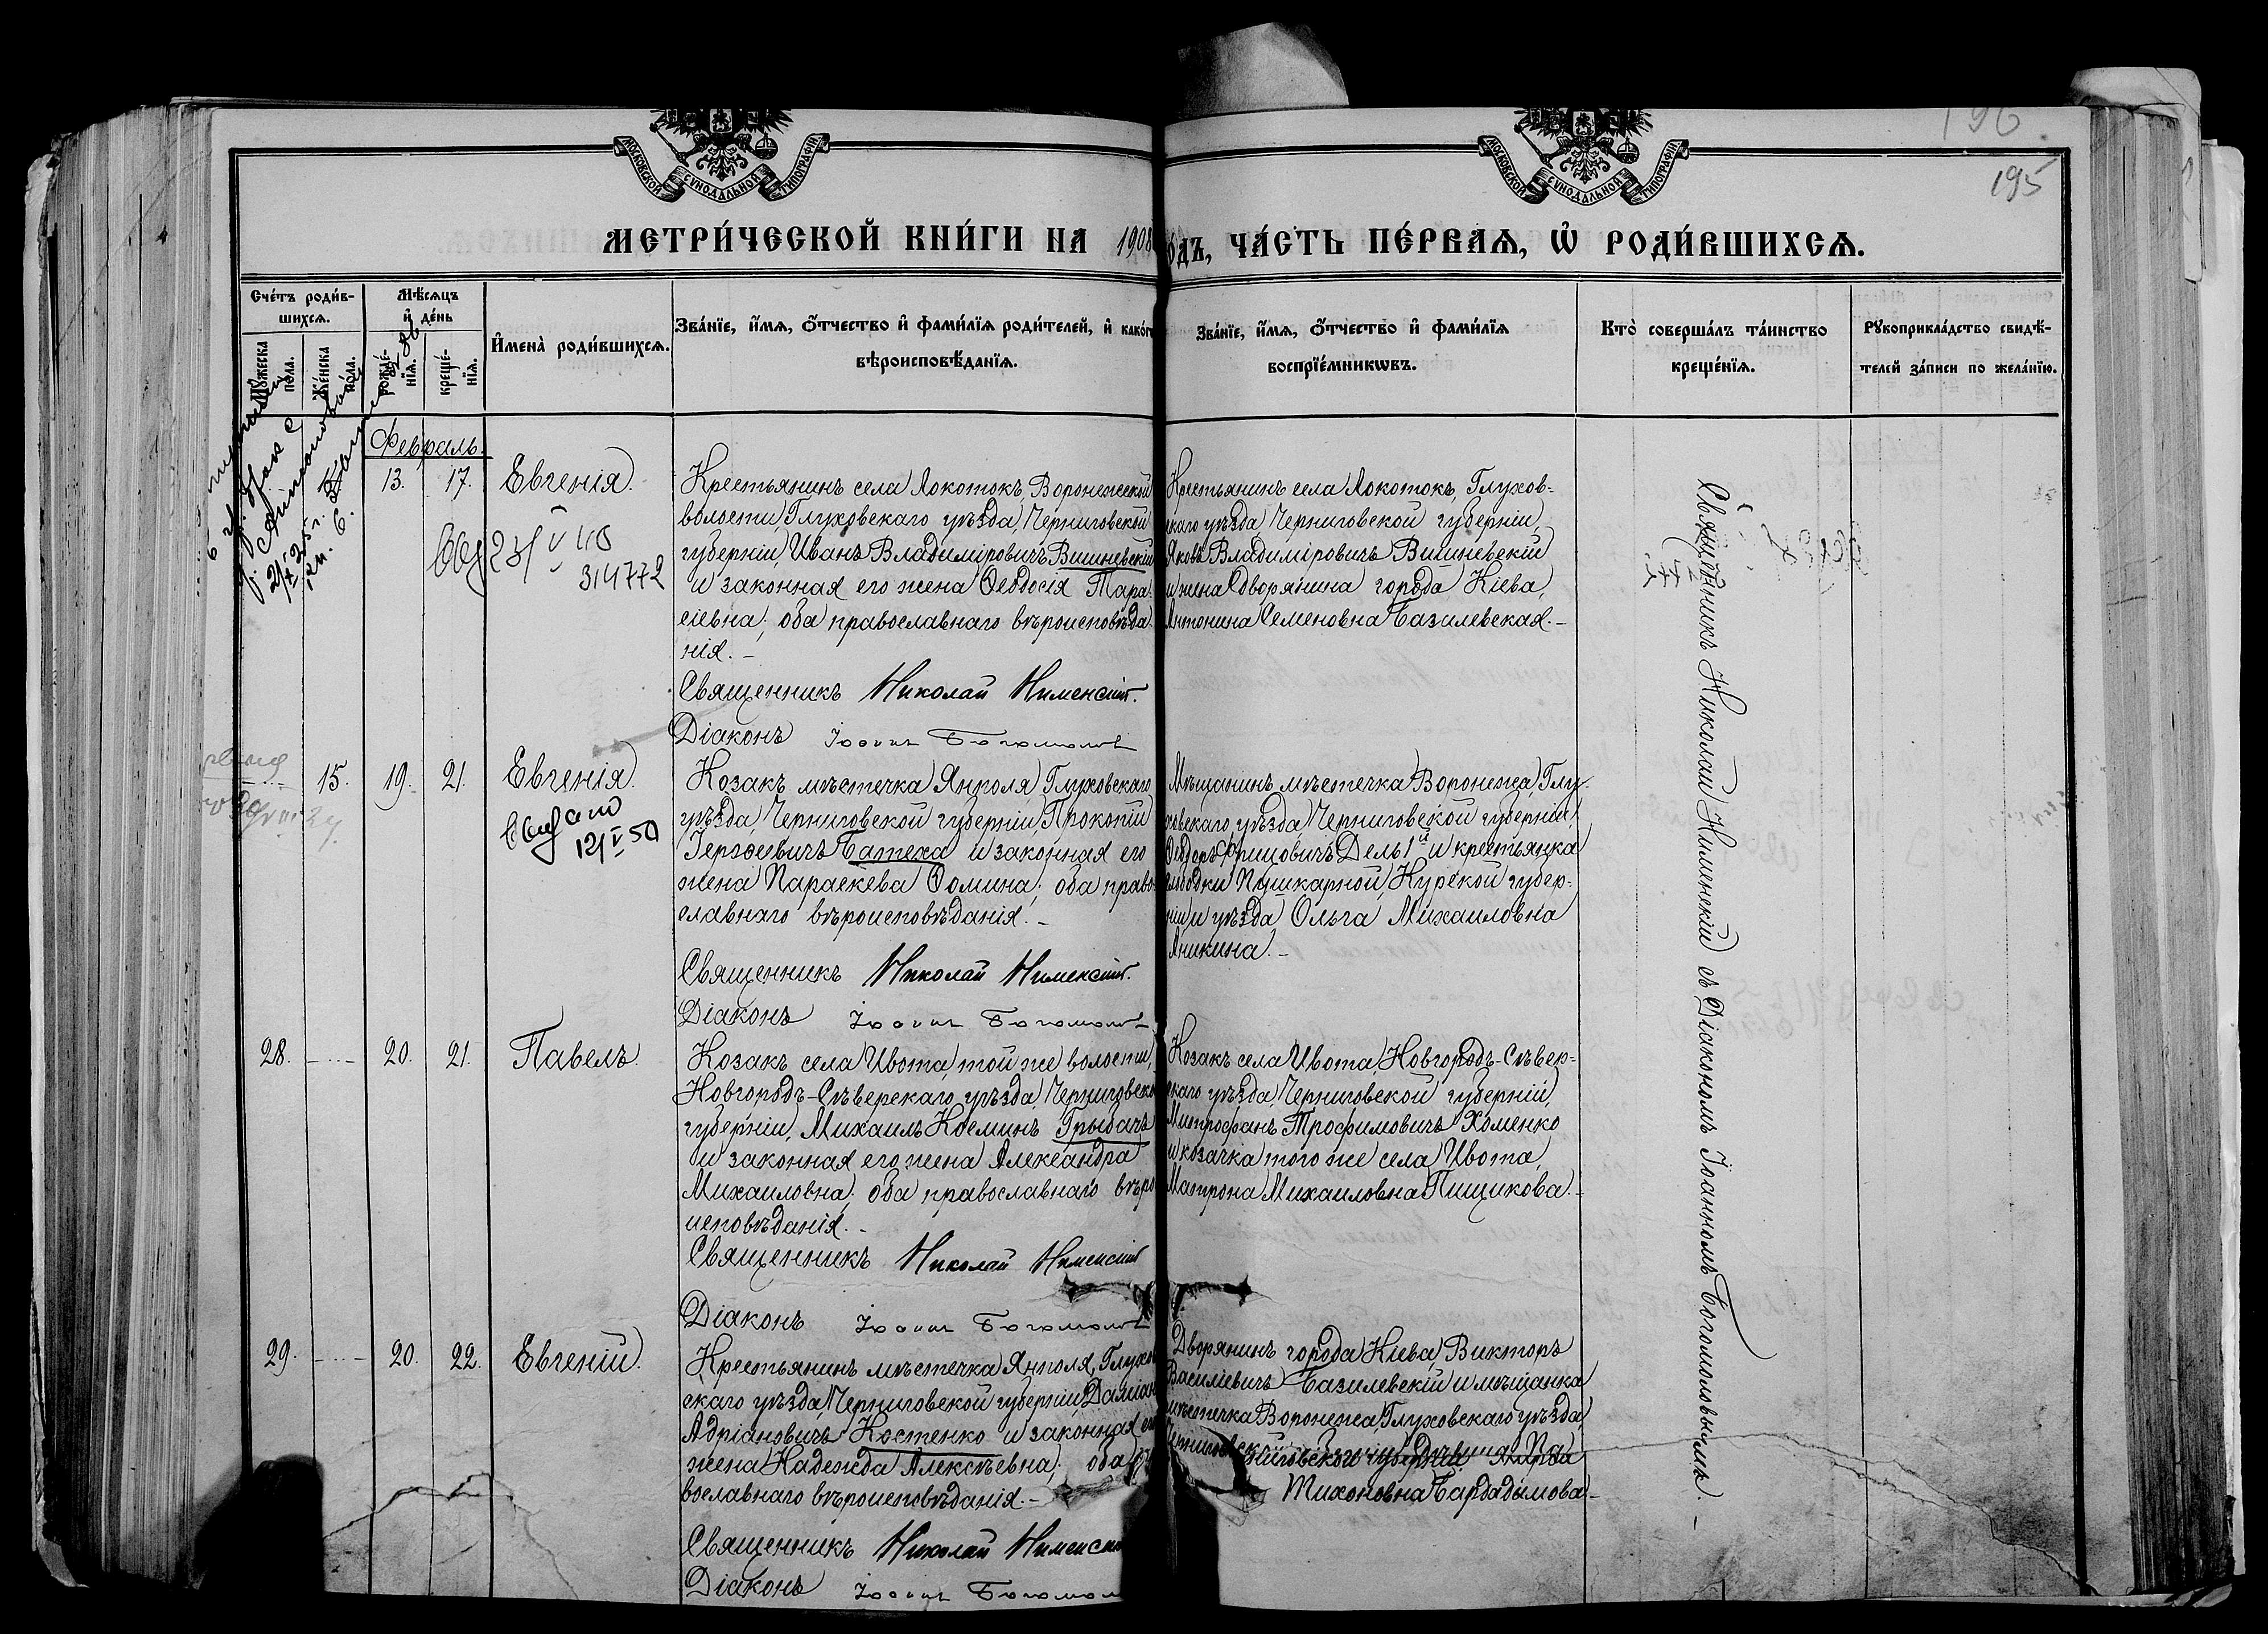 196
195
МОСКОВСКОЙ СѴНОДАЛЬНОЙ ТИПОГРАФІИ
МОСКОВСКОЙ СѴНОДАЛЬНОЙ ТИПОГРАФІИ
МЕТРИ́ЧЕСКОЙ КНИ́ГИ НА 1908
ОДЪ, ЧА́СТЬ ПЕ́РВАѦ, Ѡ҆ РОДИ́ВШИХСѦ.
Сче́тъ роди́в-
шихсѧ.
Мꙋ́жеска
по́ла.
Же́нска
по́ла.
Мѣ́сѧцъ
и҆ де́нь
рожде́-
нїѧ.
креще́-
нїѧ.
И҆мена̀ роди́вшихсѧ.
Зва́нїе, и҆́мѧ, ѻ҆́тчество и҆ фами́лїѧ роди́телей, и҆ како́гѡ
вѣроисповѣ́данїѧ.
Зва́нїе, и҆́мѧ, ѻ҆́тчество и҆ фами́лїѧ
воспрїе́мникѡвъ.
Кто̀ соверша́лъ та́инство
креще́нїѧ.
Рꙋкоприкла́дство свидѣ́-
телей за́писи по жела́нїю.
Февраль
13. 17. Евгенія.
23/V 40
314772
Крестьянинъ села Локотокъ, Воронежской
волости, Глуховскаго уѣзда, Черниговской
губерніи, Иванъ Владиміровичъ Вишневскій
и законная его жена Ѳеодосія Тара-
сіевна; оба православнаго вѣроисповѣда-
нія. –
Священникъ Николай Нименскій.
Діаконъ Іоаннъ Богомолов
Крестьянинъ села Локотокъ, Глухов-
скаго уѣзда Черниговской губерніи,
Яковъ Владиміровичъ Вишневскій
и жена дворянина города Кіева,
Антонина Семеновна Базилевская. –
15. 19. 21. Евгенія.
12/V 50
Козакъ мѣстечка Янполя, Глуховскаго
уѣзда, Черниговской губерніи, Прокопій
Іерофеевичъ Батеха и законная его
жена Параскева Ѳомина; оба право-
славнаго вѣроисповѣданія. –
Священникъ Николай Нименскій.
Діаконъ Іоаннъ Богомолов
Мѣщанинъ мѣстечка Воронежа, Глу-
ховскаго уѣзда, Черниговской губерніи,
Ѳеодоръ Дель 1й и крестьянка
слободки Пушкарной, Курской губер-
ніи и уѣзда, Ольга Михаиловна
Аникина. –
28. 20. 21. Павелъ.
Козакъ села Ивота, той же волости,
Новгородъ-Сѣверскаго уѣзда, Черниговской
губерніи, Михаилъ Косминъ Грибачъ
и законная его жена Александра
Михаиловна; оба православнаго вѣро-
исповѣданія. –
Священникъ Николай Нименскій
Діаконъ Іоаннъ Богомолов
Козакъ села Ивота, Новгородъ-Сѣвер-
скаго уѣзда, Черниговской губерніи,
Митрофанъ Трофимовичъ Хоменко
и козачка того же села Ивота,
Матрона Михаиловна Пищикова. –
29. 20. 22. Евгеній.
Крестьянинъ мѣстечка Янполя, Глухов-
скаго уѣзда, Черниговской губерніи, Даміанъ
Адріановичъ Костенко и законная его
жена Надежда Алексѣевна; оба
вославнаго вѣроисповѣданія. –
Священникъ Николай Нименскій
Діаконъ Іоаннъ Богомолов
Дворянинъ города Кіева Викторъ
Василіевичъ Базилевскій и мѣщанка
мѣстечка Воронежа, Глуховскаго уѣзда
Черниговской губерніи
Тихоновна Бардадымова –
Священникъ Николай Нименскій съ Діакономъ Іоанномъ Богомоловымъ. –